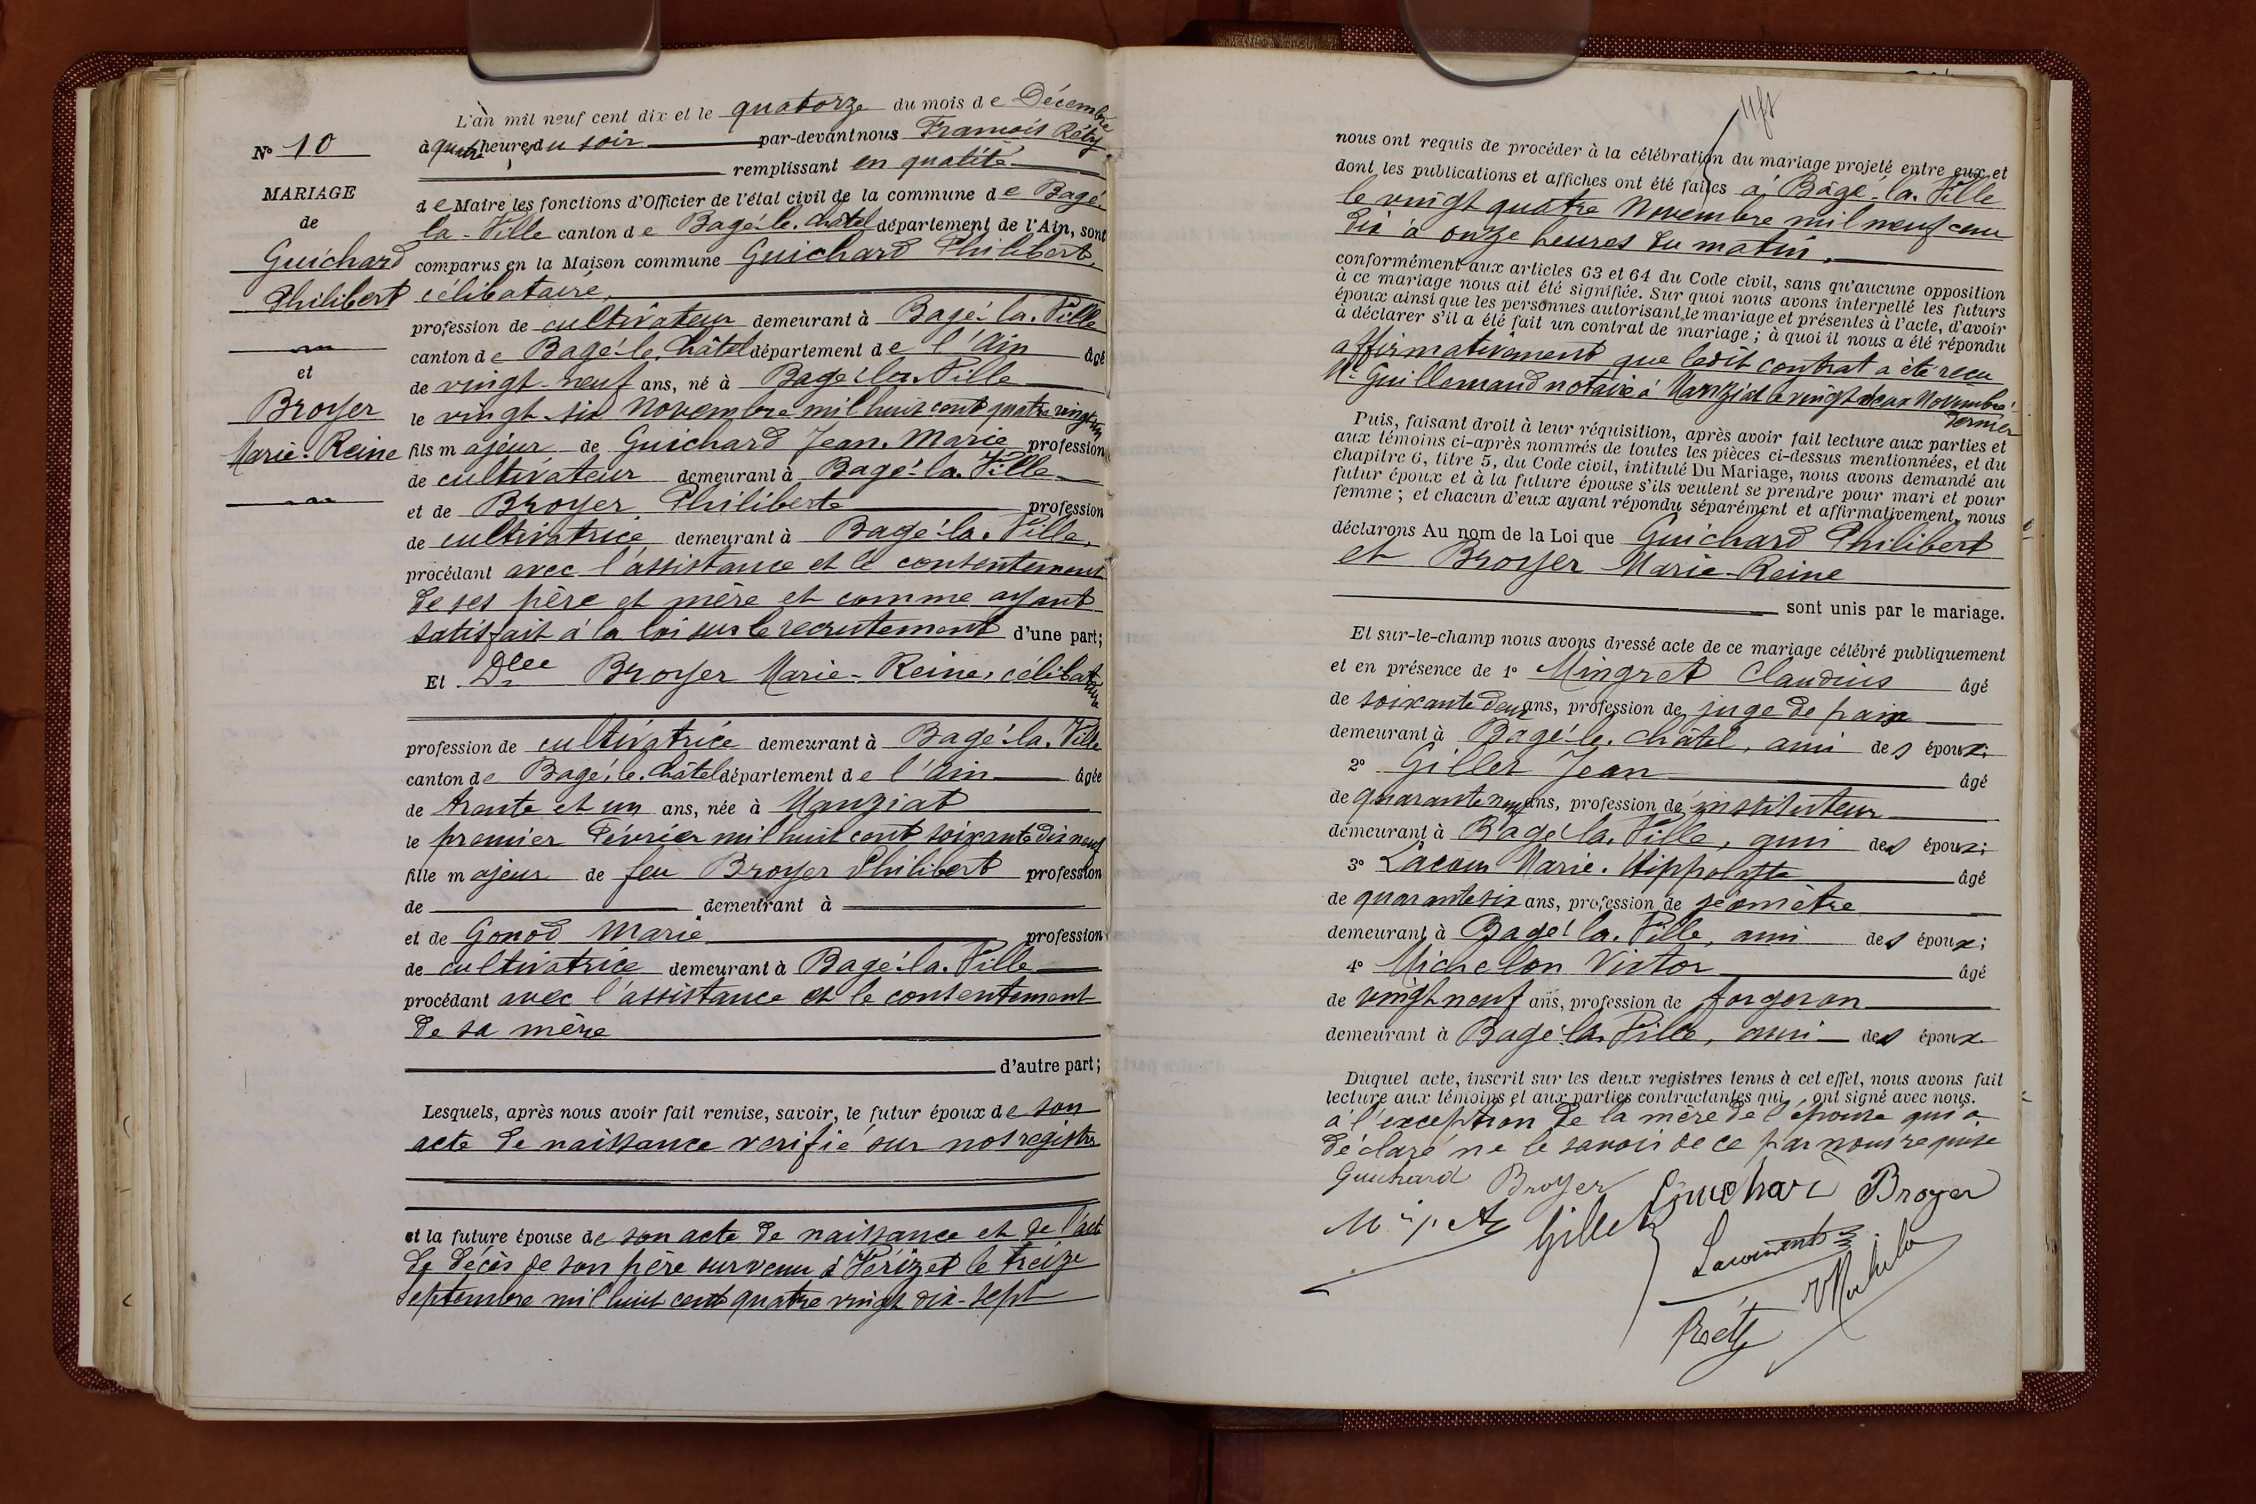 N° 10
MARIAGE
de
Guichard
Philibert
et
Broyer
Marie-Reine
L'an mil neuf cent dix et le quatorze du mois de Décembre
à quatre heures du soir par-devant nous François Réty
remplissant en qualité
de Maire les fonctions d'Officier de l'état civil de la commune de Bagé-
la-Ville canton de Bagé-le-Châtel département de l'Ain, sont
comparus en la Maison commune Guichard Philibert,
célibataire,
profession de cultivateur demeurant à Bagé-la-Ville
canton de Bagé-le-Châtel département de l'Ain âgé
de vingt-neuf ans, né à Bagé-la-Ville
le vingt-six Novembre mil huit cent quatre vingt-un
fils majeur de Guichard Jean-Marie profession
de cultivateur demeurant à Bagé-la-Ville
et de Broyer Philiberte profession
de cultivatrice demeurant à Bagé-la-Ville,
procédant avec l'assistance et le consentement
de ses père et mère et comme ayant
satisfait à la loi sur le recrutement d'une part;
Et Dlle Broyer Marie-Reine, célibataire
profession de cultivatrice demeurant à Bagé-la-Ville
canton de Bagé-le-Châtel département de l'Ain âgée
de trente et un ans, née à Manziat
le premier Février mil huit cent soixante dix neuf
fille majeur de feu Broyer Philibert profession
de demeurant à
et de Gonod Marie profession
de cultivatrice demeurant à Bagé-la-Ville
procédant avec l'assistance et le consentement
de sa mère
d'autre part;
Lesquels, après nous avoir fait remise, savoir, le futur époux de son
acte de naissance verifié sur nos registres
et la future épouse de son acte de naissance et de l'acte
de décès de son père survenu à Vérizet le treize
Septembre mil huit cent quatre vingt dix-sept
nous ont requis de procéder à la célébration du mariage projeté entre eux et
dont les publications et affiches ont été faites à Bagé-la-Ville
le vingt quatre Novembre mil neuf cent
dix à onze heures du matin,
conformément aux articles 63 et 64 du Code civil, sans qu'aucune opposition
à ce mariage nous ait été signifiée. Sur quoi nous avons interpellé les futurs
époux ainsi que les personnes autorisant le mariage et présentes à l'acte, d'avoir
à déclarer s'il a été fait un contrat de mariage; à quoi il nous a été répondu
affirmativement que ledit contrat a été reçu
Me Guillemaud notaire à Manziat le vingt deux Novembre
dernier
Puis, faisant droit à leur réquisition, après avoir fait lecture aux parties et
aux témoins ci-après nommés de toutes les pièces ci-dessus mentionnées, et du
chapitre 6, titre 5, du Code civil, intitulé Du Mariage, nous avons demandé au
futur époux et à la future épouse s'ils veulent se prendre pour mari et pour
femme; et chacun d'eux ayant répondu séparément et affirmativement, nous
déclarons Au nom de la Loi que Guichard Philibert
et Broyer Marie-Reine
sont unis par le mariage.
Et sur-le-champ nous avons dressé acte de ce mariage célébré publiquement
et en présence de 1° Mingret Claudius âgé
de soixante deux ans, profession de juge de paix
demeurant à Bagé-le-Châtel, ami des époux;
2° Gillet Jean âgé
de quarante neuf ans, profession de instituteur
demeurant à Bagé-la-Ville, ami des époux;
3° Lacour Marie-Hippolyte âgé
de quarante six ans, profession de géomètre
demeurant à Bagé-la-Ville, ami des époux;
4° Michelon Victor âgé
de vingt neuf ans, profession de forgeron
demeurant à Bagé-la-Ville, ami des époux
Duquel acte, inscrit sur les deux registres tenus à cet effet, nous avons fait
lecture aux témoins et aux parties contractantes qui ont signé avec nous.
à l'exception de la mère de l'épouse qui a
déclaré ne le savoir de ce par nous requise
Guichard Broyer Guichard Broyer
Gillet
Réty